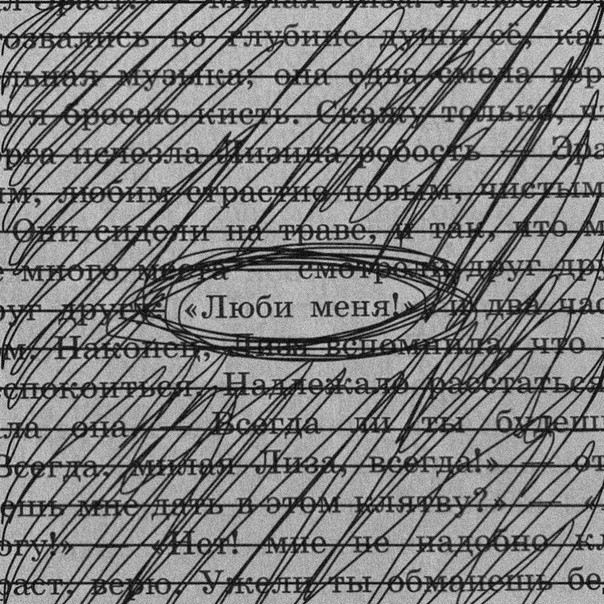 Эраст: — «Милая Лиза! Я люблю
отозвались во глубине души её, как
музыка; она едва смела
я бросаю кисть. Скажу только, что
исчезла Лизина робость —
любим страстно новым, чистым
Они сидели на траве, и так, что
много места — смотрели друг
друг другу: «Люби меня!», и два
Наконец, Лиза вспомнила, что
Надлежало расстаться
она — Всегда ли ты будешь
Всегда, милая Лиза, всегда!» —
мне дать в этом клятву?» —
«Нет! мне не надобно
верю. Ужели ты обманешь